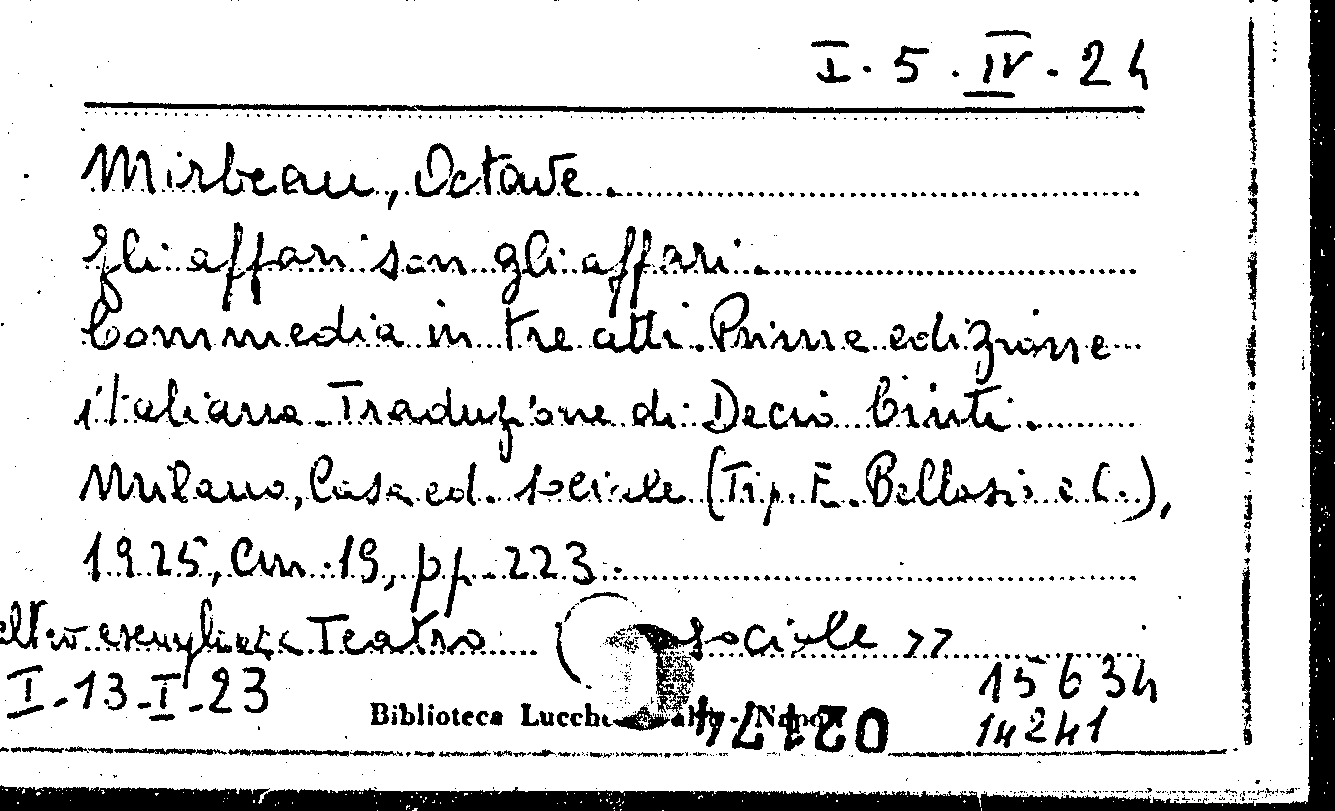 I. 5. IV. 24
Mirbeau, Octave.
Gli affari son gli affari.
Commedia in tre atti. Prima edizione
italiana. Traduzione di Decio Cinti.
Milano, Casa ed. sociale (Tip. E. Bellasio e C.),
1925, cm. 19, pp. 223.
altro esemplare Teatro sociale >>
I-13-I-23
15634
Biblioteca Napoli
14241